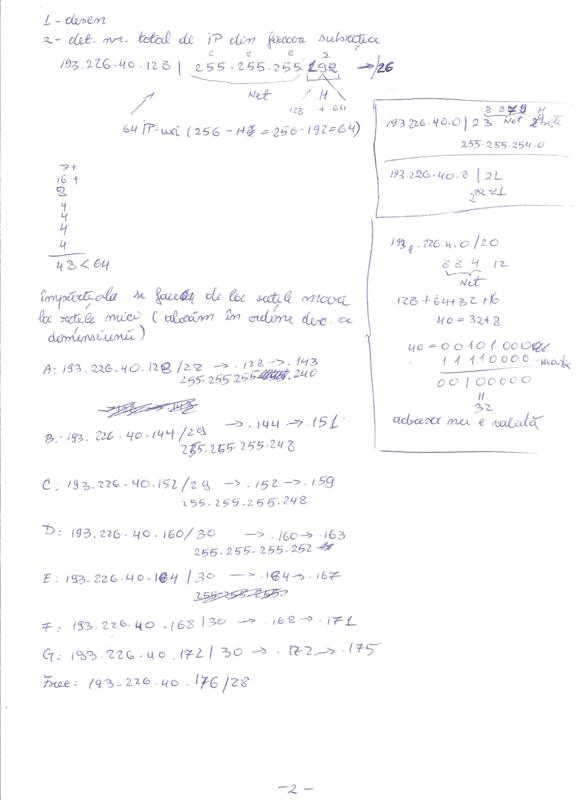 1 - desen
2 - det. nr. total de iP din fiecare subrețea
193.226.40.128 | 255.255.255.192 → /26
8 8 8 2
Net H
128 + 64
64 iP-uri (256 - = 256-192=64)
16 +
8
4
4
4
4
48 < 64
împărțeala se face de la rețele mari
la rețele mici (alocăm în ordine desc. a
dimensiunii)
A: 193.226.40.128/28 → .128 → .143
255.255.255.240
B: 193.226.40.144/29 → .144 → .151
255.255.255.248
C: 193.226.40.152/29 → .152 → .159
255.255.255.248
D: 193.226.40.160/30 → .160 → .163
255.255.255.252
E: 193.226.40.164/30 → .164 → .167
F: 193.226.40.168/30 → .168 → .171
G: 193.226.40.172/30 → .172 → .175
Free: 193.226.40.176/28
193.226.40.0 | 23 Net
255.255.254.0
193.226.40.0 | 22
193.226.40.0/20
8 8 4 12
Net
128+64+32+16
40 = 32+8
40 = 00101000
11110000 - mask
00100000
11
32
adresa nu e validă
-2-